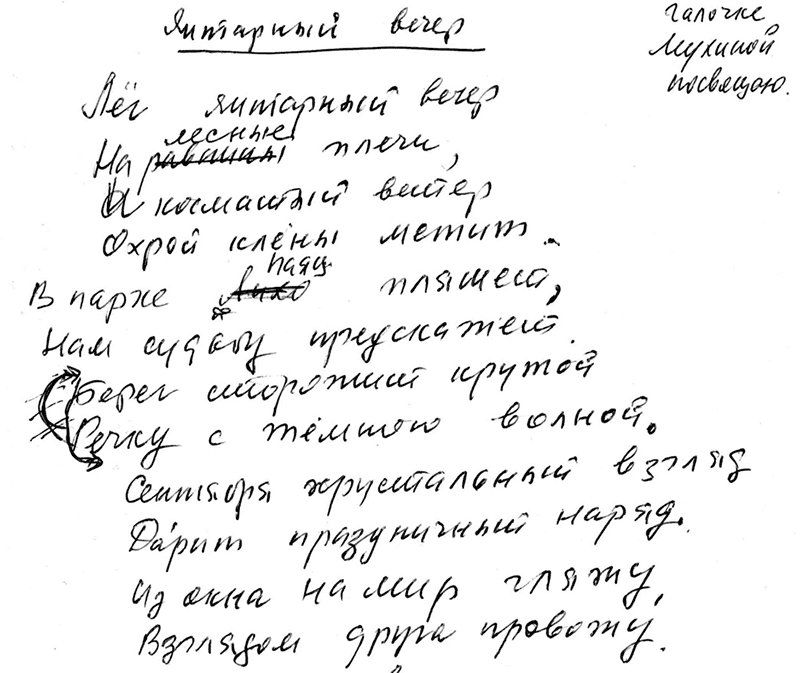 Янтарный вечер
Галочке
Мухиной
посвящаю.
Лёг янтарный вечер
На лесные плечи,
И косматый ветер
Охрой клёны метит.
В парке паяц пляшет,
Нам судьбу предскажет.
Берег сторожит крутой
Речку с тёмною волной.
Сентября хрустальный взгляд
Да́рит праздничный наряд.
Из окна на мир гляжу,
Взглядом друга провожу.